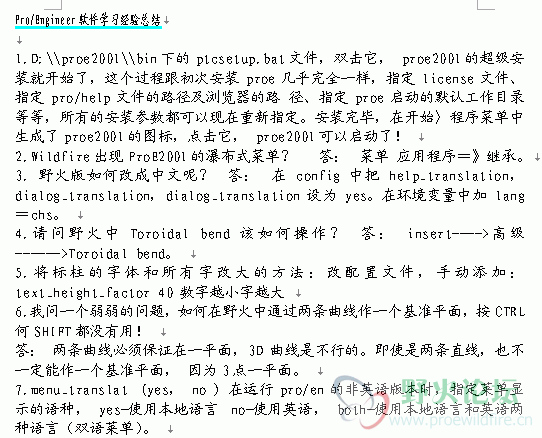 Pro/Engineer软件学习经验总结
1.D:\\proe2001\\bin下的ptcsetup.bat文件，双击它， proe2001的超级安
装就开始了，这个过程跟初次安装 proe 几乎完全一样，指定 license 文件、
指定 pro/help 文件的路径及浏览器的路 径、指定 proe 启动的默认工作目录
等等，所有的安装参数都可以现在重新指定。安装完毕，在开始〉程序菜单中
生成了 proe2001 的图标，点击它， proe2001 可以启动了！
2.Wildfire 出现 ProE2001 的瀑布式菜单？ 答： 菜单 应用程序＝》继承。
3. 野火版如何改成中文呢？ 答： 在 config 中把 help_translation，
dialog_translation，dialog_translation 设为 yes。在环境变量中加 lang
＝chs。
4.请问野火中 Toroidal bend 该如何操作？ 答： insert---->高级
------>Toroidal bend。
5.将标柱的字体和所有字改大的方法：改配置文件，手动添加：
text_height_factor 40 数字越小字越大
6.我问一个弱弱的问题，如何在野火中通过两条曲线作一个基准平面，按 CTRL
何 SHIFT 都没有用！
答： 两条曲线必须保证在一平面，3D 曲线是不行的。即使是两条直线，也不
一定能作一个基准平面， 因为 3点一平面。
7.menu_translat (yes, no ) 在运行 pro/en 的非英语版本时，指定菜单显
示的语种， yes-使用本地语言 no-使用英语， both-使用本地语言和英语两
种语言（双语菜单）。
野火论坛
www.proewildfire.cn